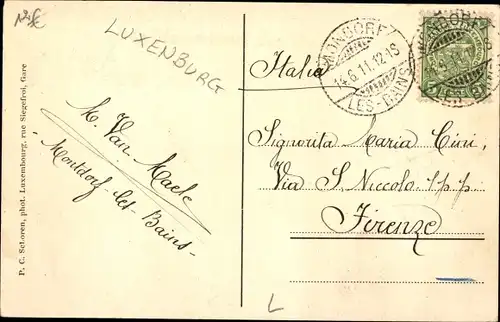 LUXENBURG
M. Van Maele
Montdorf-les-Bains-
P. C. Schoren, phot. Luxembourg, rue Siegefroi, Gare
MONDORF
14.6.11.12-1S
LES-BAINS
Italia
Signorita Maria Cini,
Via S. Niccolo 1.p.p
Firenze
L